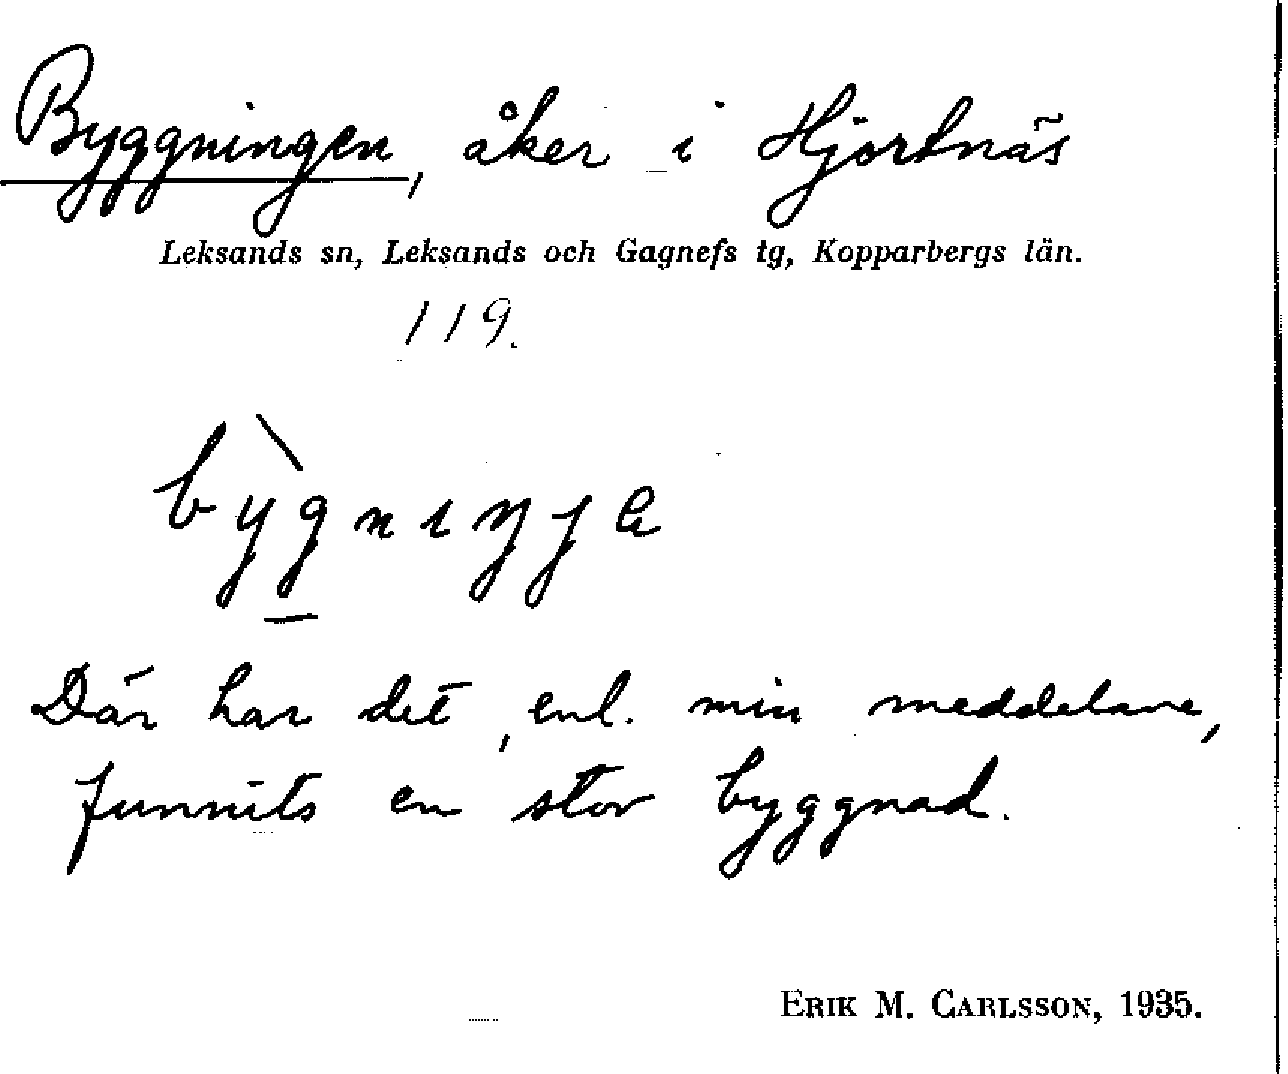 Byggningen, åker i Hjortnäs
Leksands sn, Leksands och Gagnefs tg, Kopparbergs län.
119.
Där har det, enl. min meddelare,
funnits en stor byggnad.
ERIK M. CARLSSON, 1935.